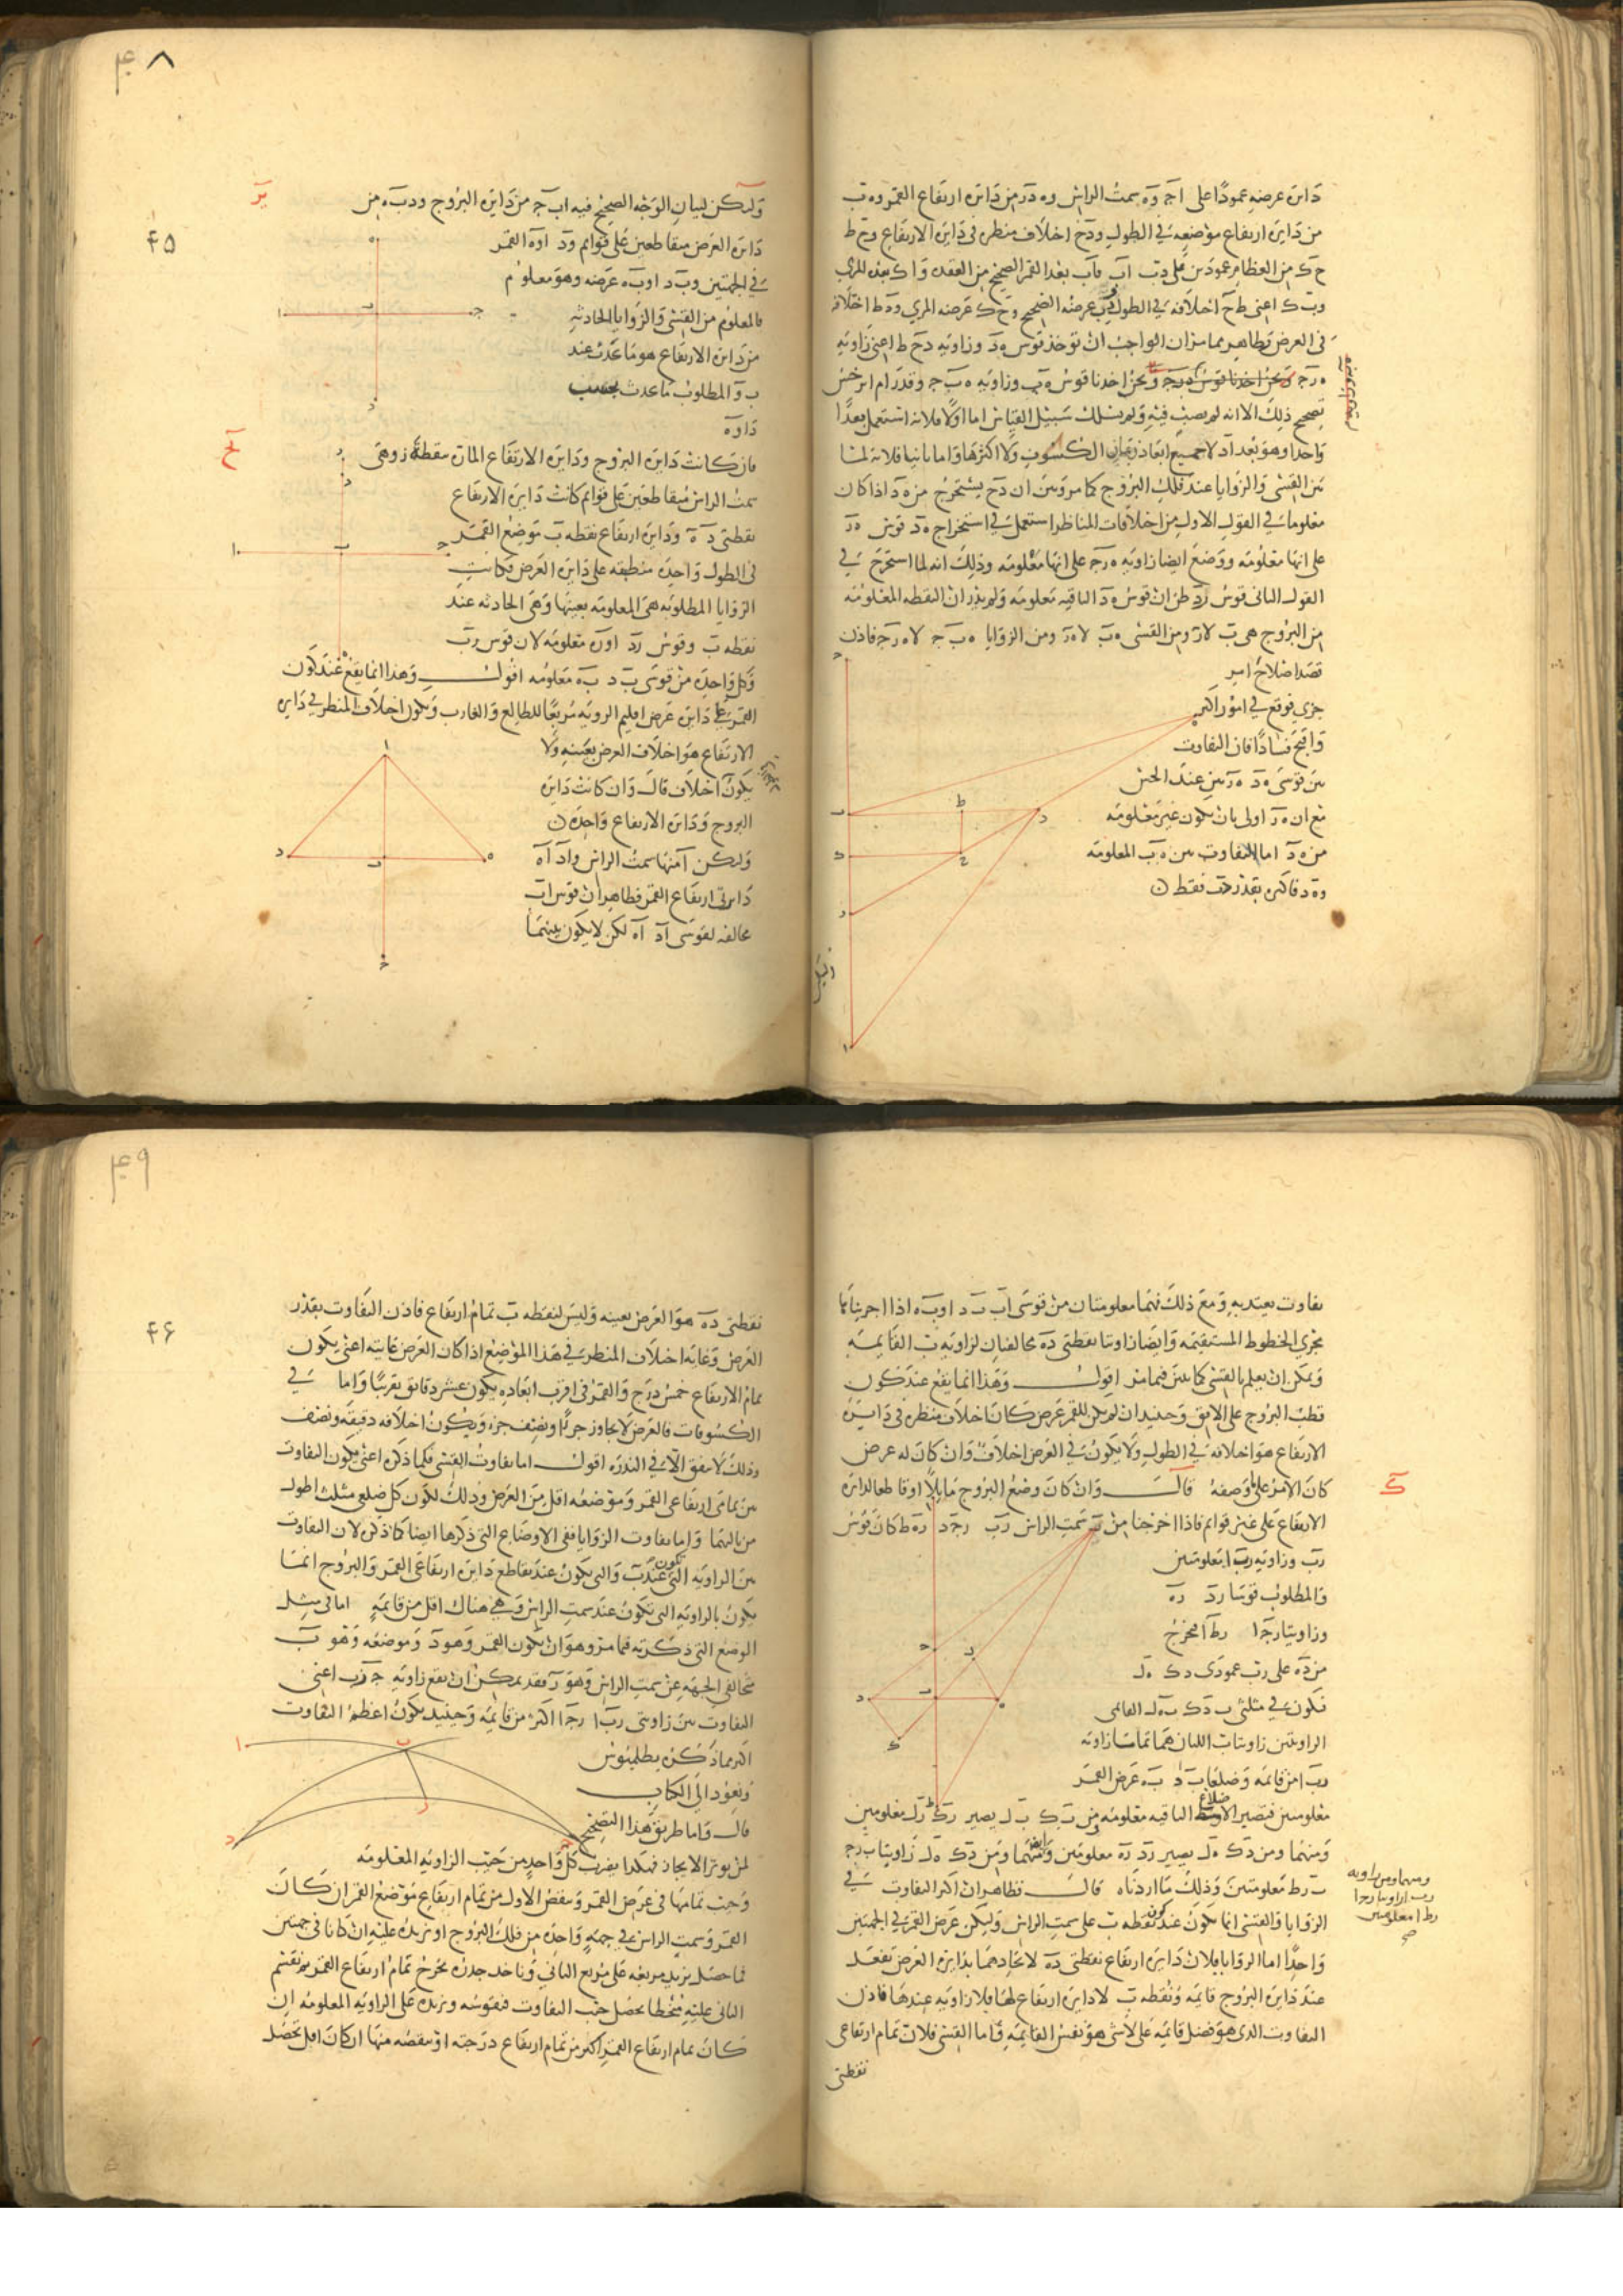 دائرة عرضه عمودًا على اجـ و ه سمت الراس و ه د ر من دائرة ارتفاع القمر و ه ب
من دائرة ارتفاع موضعه في الطول و د ح اختلاف منظره في دائرة الارتفاع و ح ط
ح ك من العظام عمودين على د ب ا ب فاب بعد القمر الصحيح من العقدة و ا ك بعده المرئي
و ب ك اعنى ط ح اختلافه في الطول و د ب عرضه الصحيح و ح ك عرضه المرئي و د ط اختلافه
في العرض فظاهر مما مر ان الواجب ان توخذ قوس ه د وزاوية د ح ط اعنى زاوية
ه ر جـ ونحن اخذنا قوس ه ب وزاوية ه ب جـ وقد رام ابرخس
تصحيح ذلك الا انه لم يصب فيه ولم يسلك سبيل القياس اما اولا فلانه استعمل بعدًا
واحدا وهو بعد ا د لا جميع ابعاد زمان الكسوف ولا اكثرها واما ثانيا فلانه لما
بين القسى والزوايا عند فلك البروج كما مر وبين ان د ح يستخرج من ه د اذا كان
معلوما في القول الاول من اختلافات المناظر استعمل في استخراج ه د قوس ه ر
على انها معلومة ووضع ايضا زاوية ه ر جـ على انها معلومة وذلك انه لما استخرج في
القول الثاني قوس ر د ظن ان قوس ه د الباقية معلومة ولم يدر ان النقطة المعلومة
من البروج هي ب لا ر ومن القسى ه ب لا ه ر ومن الزوايا ه ب جـ لا ه ر جـ فاذن
قصد اصلاح امر
جزئي فوقع في امور اكثر
واقبح فسادًا فان التفاوت
بين قوسى ه د ه ر بين عند الحس
مع ان ه ر اولى بان يكون غير معلومة
من ه د اما التفاوت بين ه ب المعلومة
و ه د فاكثره بقدر د ب فقط
وليكن
٤٨
٤٥
يز
وليكن لبيان الوجه الصحيح فيه ا ب جـ من دائرة البروج و د ب ه من
دائرة العرض متقاطعين على قوائم و د او ه القمر
في الجهتين و ب د او ب ه عرضه وهو معلوم
فالمعلوم من القسى والزوايا الحادثة
من دائرة الارتفاع هو ما حدث عند
ب والمطلوب ما حدث بحسب
د او ه
يح
فان كانت دائرة البروج ودائرة الارتفاع المارة بنقطة ز وهى
سمت الراس متقاطعين على قوائم كانت دائرة الارتفاع
نقطتى د ه ودائرة ارتفاع نقطة ب موضع القمر
في الطول واحدة منطبقة على دائرة العرض فكانت
الزوايا المطلوبة هي المعلومة بعينها وهي الحادثة عند
نقطة ب وقوس ر د او ر ه معلومة لان قوس ر ب
وكل واحدة من قوسى ب د ب ه معلومة اقول وهذا انما يقع عند كون
القمر على دائرة عرض اقليم الرؤية تربيعا للطالع والغارب ويكون اختلاف المنظر في دائرة
الارتفاع هو اختلاف العرض بعينه ولا
يكون اختلاف قال وان كانت دائرة
البروج ودائرة الارتفاع واحدة
وليكن ا منها سمت الراس و ا د ا ه
دائرتى ارتفاع القمر فظاهر ان قوس ا ب
مخالفة لقوسى ا د ا ه لكن لا يكون بينهما
تفاوت يعتد به ومع ذلك فهما معلومتان من قوسى ا ب ب د او ب ه اذا اجريناها
مجرى الخطوط المستقيمة وايضا زاويتا نقطتى د ه مخالفتان لزاوية ب القائمة
ويمكن ان يعلم بالقسى كما بين فيما مر اقول وهذا انما يقع عند كون
قطب البروج على الافق وحينئذ ان لم يكن للقمر عرض كان اختلاف منظره في دائرة
الارتفاع هو اختلافه في الطول ولا يكون في العرض اختلاف وان كان له عرض
ك
كان الامر على ما وصفه قال وان كان وضع البروج مايلا او قاطعا لدائرة
الارتفاع على غير قوائم فاذا اخرجنا من ر سمت الراس ر ب ر جـ د ر ه ط كان قوس
ر ب وزاوية ر ب ا معلومتين
والمطلوب قوسا ر د ر ه
وزاويتا ر جـ ا ر ط ا فنخرج
من د ه على ر ب عمودى د ك ه ل
فيكون في مثلثى ب د ك ب ه ل القائمى
الزاويتين زاويتا ب اللتان هما تماما زاوية
ر ب ا من قائمة وضلعا ب د ب ه عرض القمر
معلومين فتصير الاضلاع الباقية معلومة ومن ر ب ك ب ل يصير ر ك ر ل معلومين
ومنهما ومن د ك ه ل يصير ر د ر ه معلومين وايضا منهما ومن د ك ه ل زاويتا ب ر جـ
ب ر ط معلومتين وذلك ما اردناه قال فظاهر ان اكثر التفاوت في
ومنهما ومن زاوية
ر ب ا زاويتا ر جـ ا
ر ط ا معلومتين
صح
الزوايا والقسى انما يكون عند كون نقطة ب على سمت الراس وليكن عرض القمر في الجهتين
واحدًا اما الزوايا فلان دائرة ارتفاع نقطتى د ه لاتحادهما بدائرة العرض تفعل
عند دائرة البروج قائمة ونقطة ب لا دائرة ارتفاع لها فلا زاوية عندها فاذن
التفاوت الذي هو فضل قائمة على لا شى هو نفس القائمة واما القسى فلان تمام ارتفاعى
نقطتى
٤٩
٤٦
نقطتى د ه هو العرض بعينه وليس لنقطة ب تمام ارتفاع فاذن التفاوت بقدر
العرض وغاية اختلاف المنظر في هذا الموضع اذا كان العرض غايته اعنى يكون
تمام الارتفاع خمس درج والقمر في اقرب ابعاده يكون عشر دقائق تقريبا واما في
الكسوفات فالعرض لا يجاوز جزءًا ونصف جزء ويكون اختلافه دقيقة ونصف
وذلك لا يتفق الا في الندرة اقول اما تفاوت القسى فكما ذكره اعنى يكون التفاوت
بين تمامى ارتفاعى القمر وموضعه اقل من العرض وذلك لكون كل ضلعى مثلث اطول
من ثالثهما واما تفاوت الزوايا ففى الاوضاع التي ذكرها ايضا كما ذكره لان التفاوت
بين الزاوية التي تكون عند ب والتي يكون عند تقاطع دائرة ارتفاعى القمر والبروج انما
يكون بالزاوية التي تكون عند سمت الراس وهي هناك اقل من قائمة اما في مثل
الوضع التي ذكرته فيما مر وهو ان يكون القمر وهو د وموضعه وهو ب
مخالفى الجهة عن سمت الراس وهو ر فقد يمكن ان يقع زاوية جـ ر ب اعنى
التفاوت بين زاويتى ر ب ا ر جـ ا اكثر من قائمة وحينئذ يكون اعظم التفاوت
اكثر مما ذكره بطلميوس
ونعود الى الكتاب
قال واما طريق هذا التصحيح
لمن يؤثر الايجاز فهكذا يضرب كل واحد من جيب الزاوية المعلومة
وجيب تمامها في عرض القمر وينقص الاول من تمام ارتفاع موضع القمر ان كان
القمر وسمت الراس في جهة واحدة من فلك البروج او نزيده عليه ان كانا في جهتين
فما حصل نزيد مربعه على مربع الثانى وناخذ جذره يخرج تمام ارتفاع القمر ثم نقسم
الثانى عليه منحطا يحصل جيب التفاوت فنقوسه ونزيده على الزاوية المعلومة ان
كان تمام ارتفاع القمر اكثر من تمام ارتفاع درجته او ننقصه منها ان كان اقل يحصل